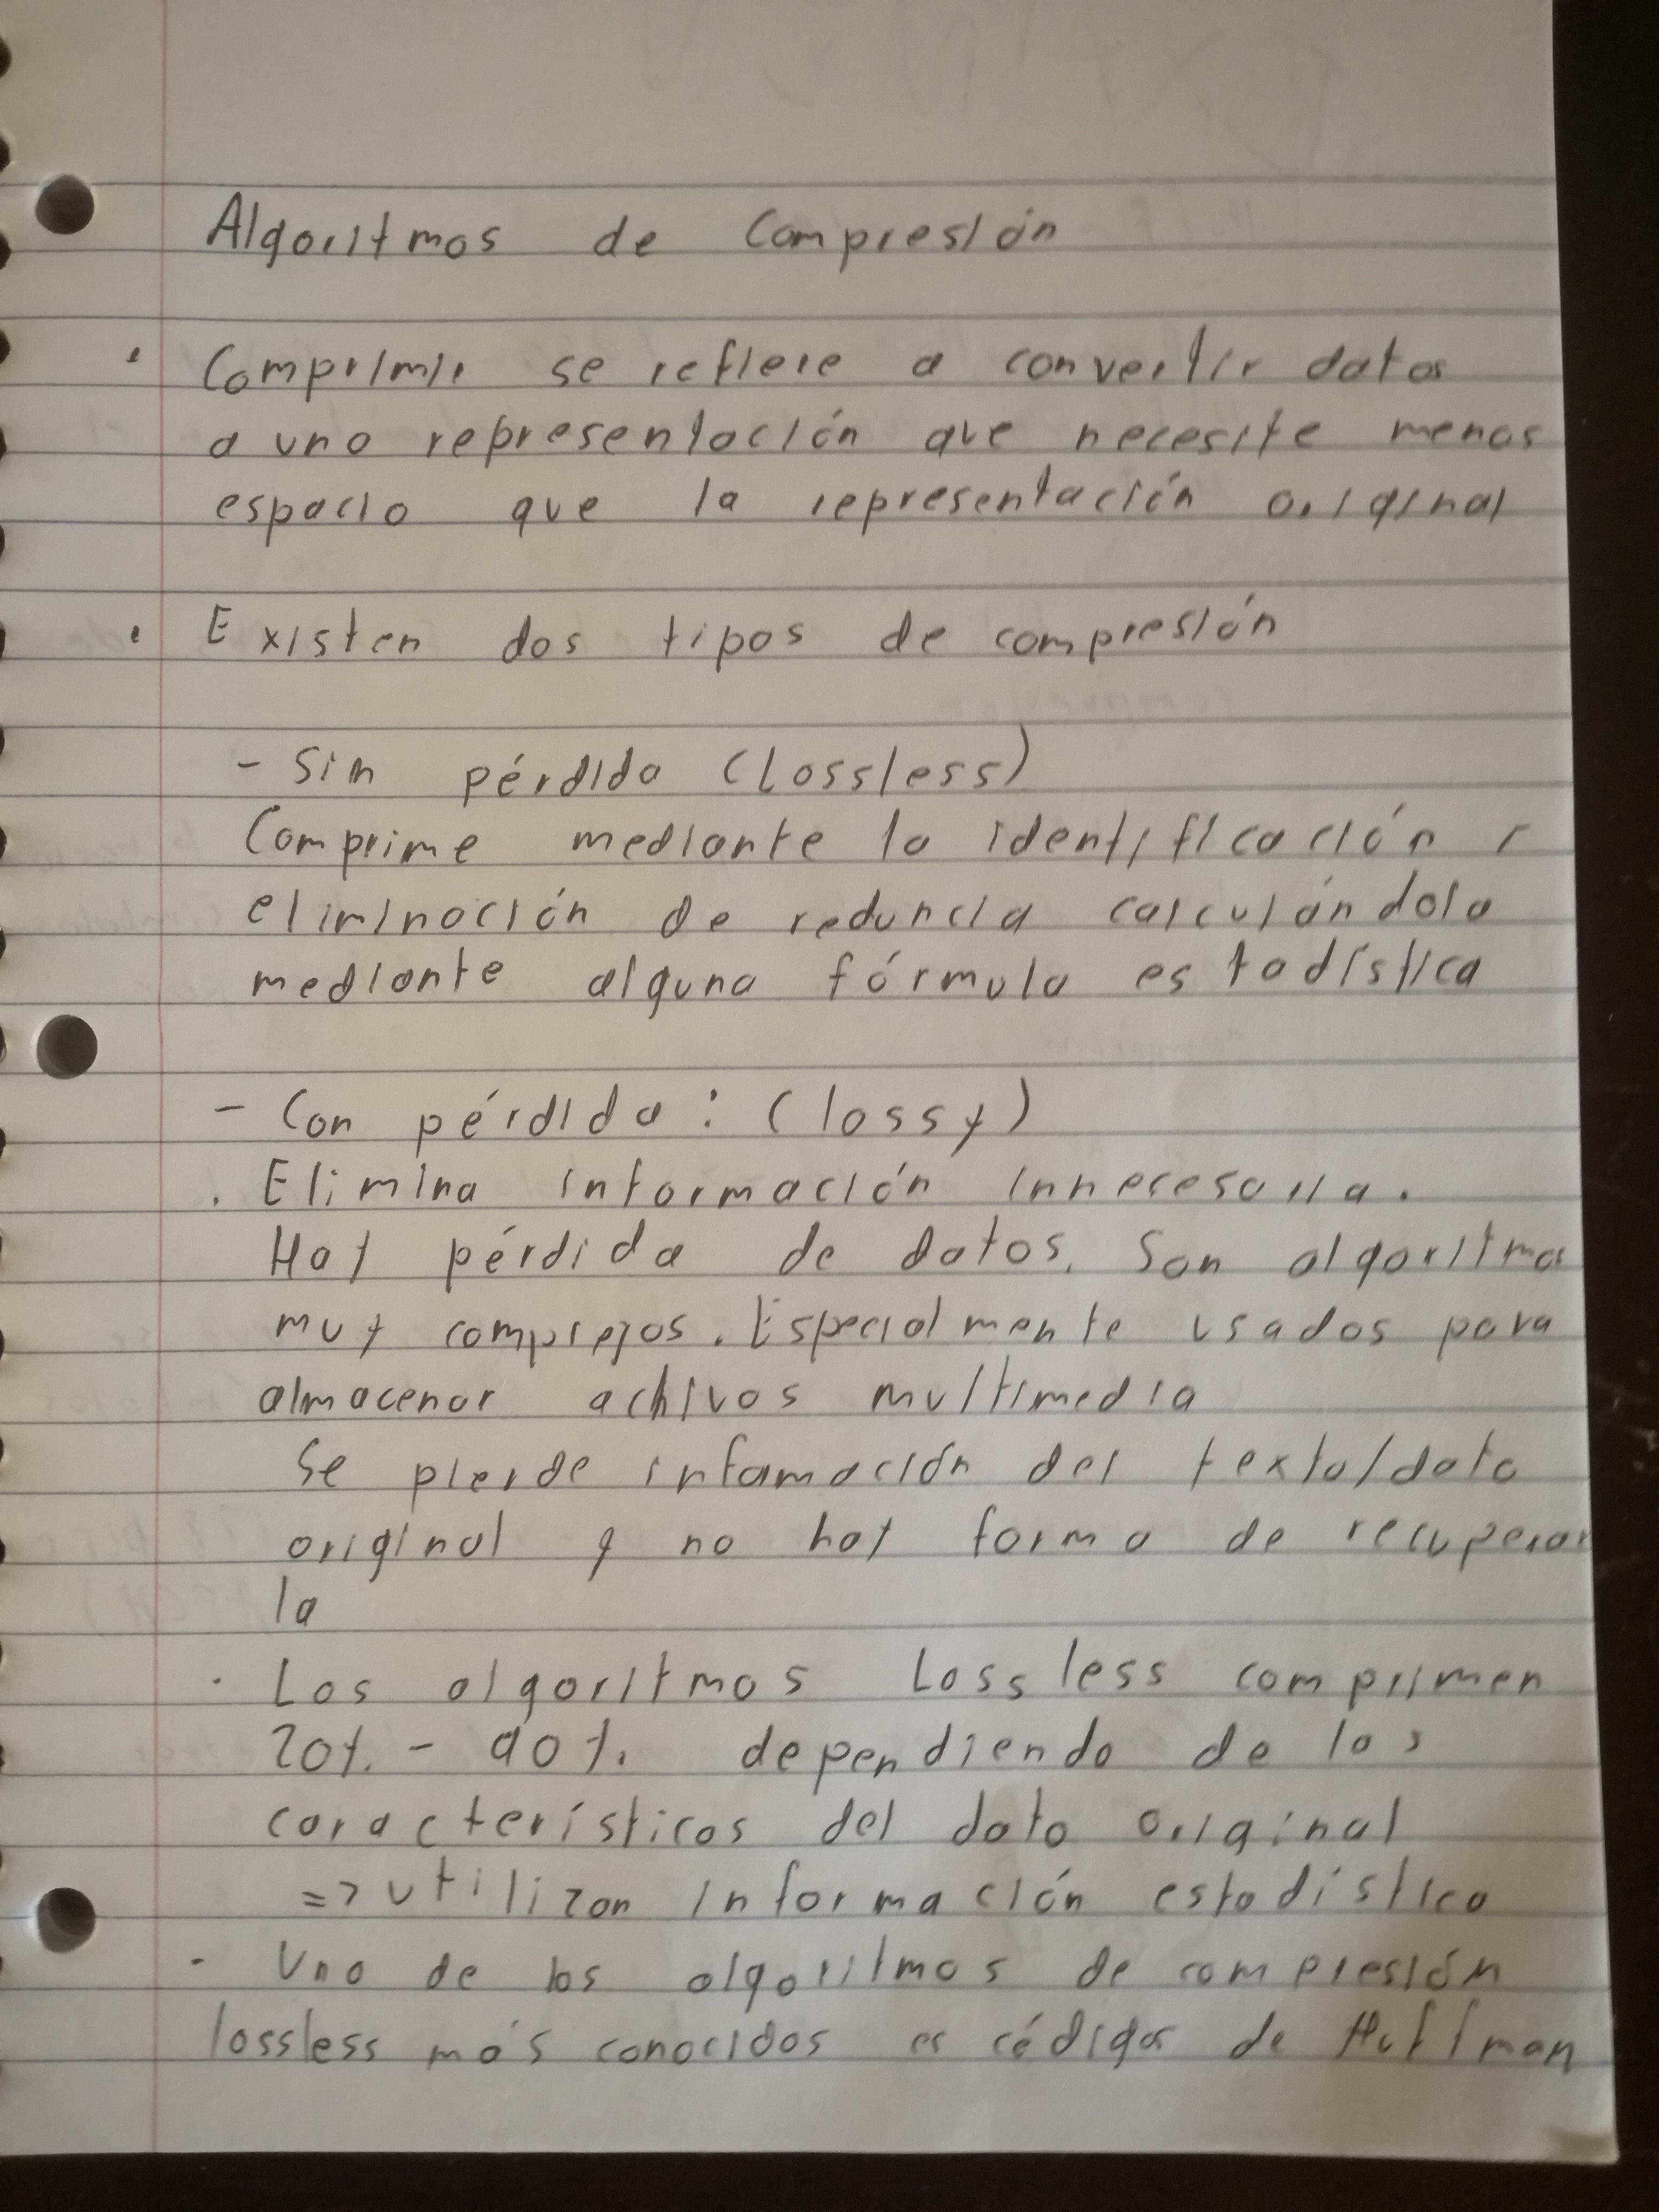 Algoritmos de Compresión
• Comprimir se refiere a convertir datos
a una representación que necesite menos
espacio que la representación original
• Existen dos tipos de compresión
- Sin pérdida (Lossless)
Comprime mediante la identificación
eliminación de reduncia calculándola
mediante alguna fórmula estadística
- Con pérdida: (lossy)
. Elimina información innecesaria.
Hay pérdida de datos. Son algoritmos
muy complejos. Especialmente usados para
almacenar achivos multimedia
Se pierde infamación del texto/dato
original y no hay forma de recuperar
la
· Los algoritmos Lossless comprimen
20% - 90% dependiendo de las
características del dato original
=> utilizan información estadística
- Uno de los algoritmos de compresión
lossless más conocidos es códigos de Huffman